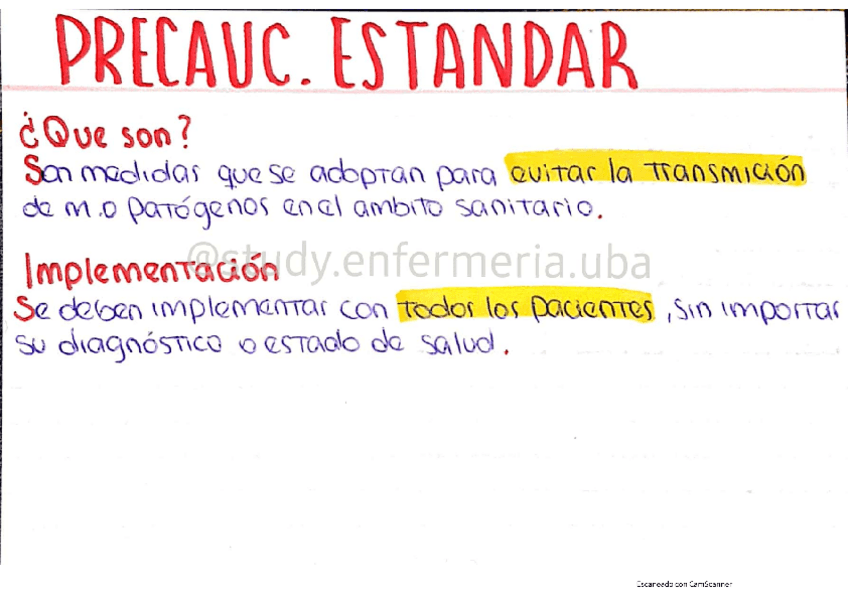 PRECAUC. ESTANDAR
¿Que son?
Son medidas que se adoptan para evitar la transmición
de m.o patógenos en el ambito sanitario.
@study.enfermeria.uba
Implementación
Se deben implementar con todos los pacientes, sin importar
su diagnóstico o estado de salud.
Escaneado con CamScanner